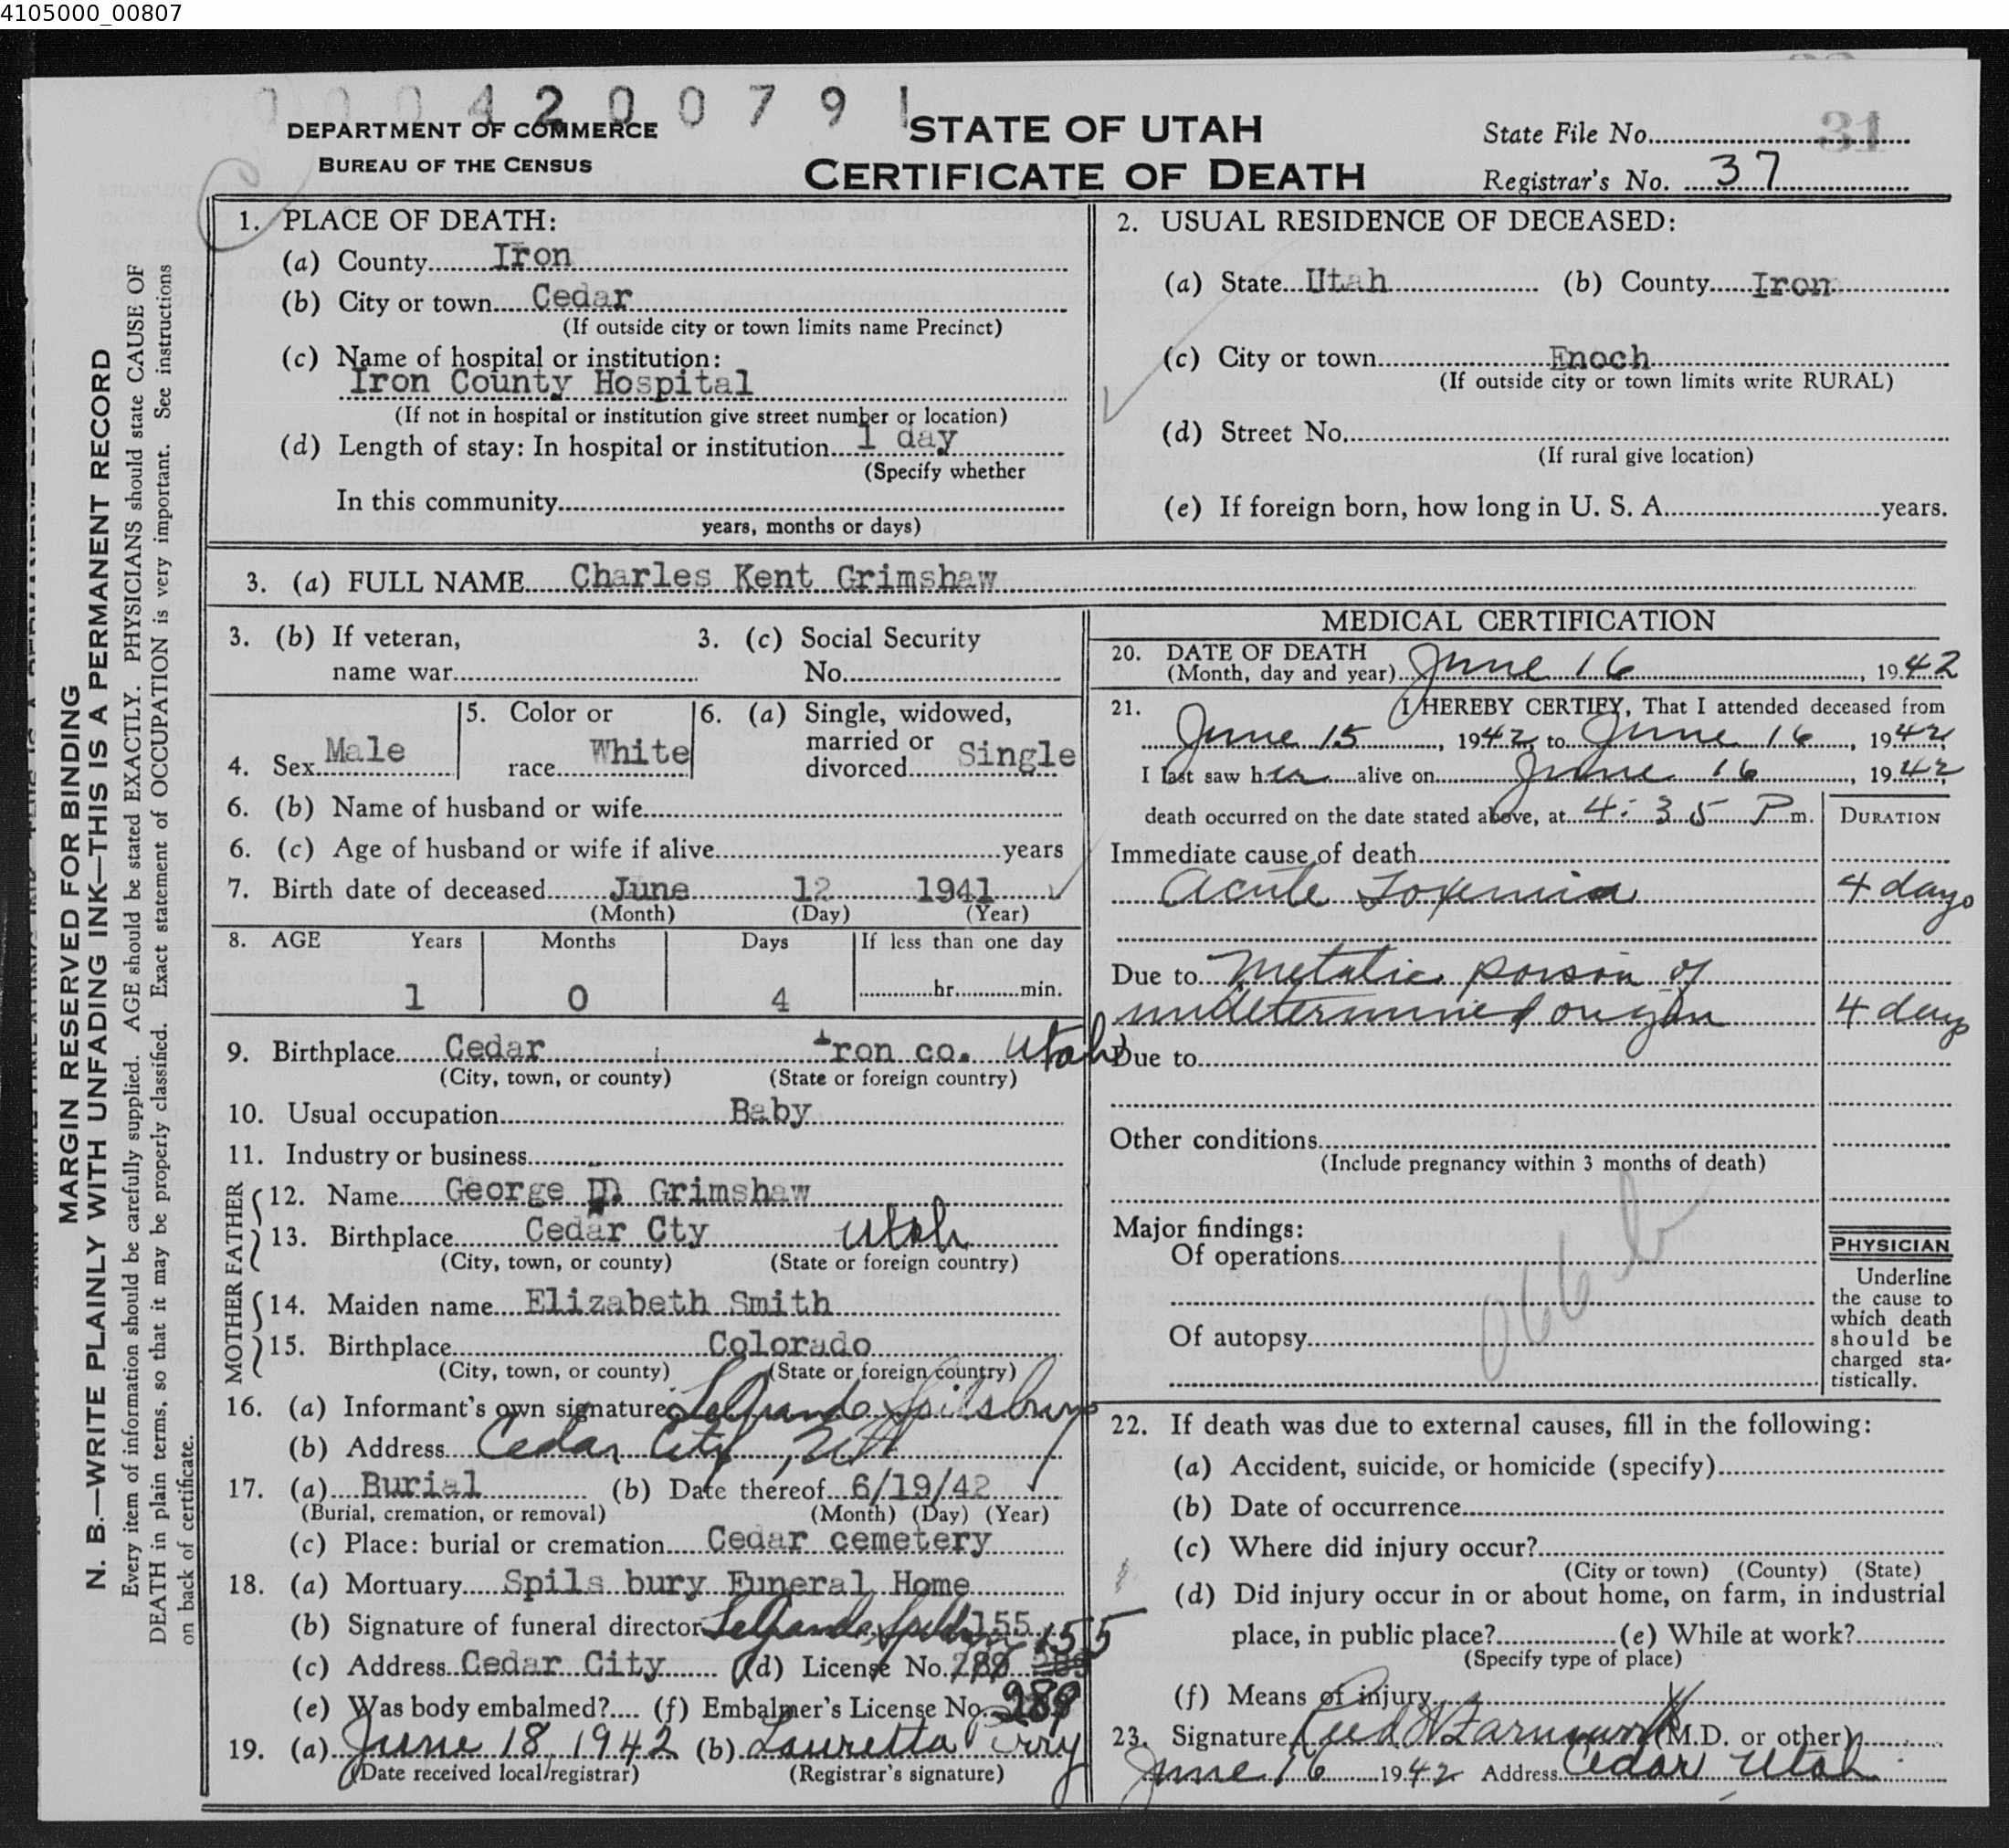 4105000_00807
0 0 0 4 2 0 0 7 9 1
DEPARTMENT OF COMMERCE
BUREAU OF THE CENSUS
STATE OF UTAH
CERTIFICATE OF DEATH
State File No. 31
Registrar's No. 37
MARGIN RESERVED FOR BINDING
N. B.—WRITE PLAINLY WITH UNFADING INK—THIS IS A PERMANENT RECORD
Every item of information should be carefully supplied. AGE should be stated EXACTLY. PHYSICIANS should state CAUSE OF
DEATH in plain terms, so that it may be properly classified. Exact statement of OCCUPATION is very important. See instructions
on back of certificate.
1. PLACE OF DEATH:
(a) County Iron
(b) City or town Cedar
(If outside city or town limits name Precinct)
(c) Name of hospital or institution:
Iron County Hospital
(If not in hospital or institution give street number or location)
(d) Length of stay: In hospital or institution 1 day
(Specify whether
In this community
years, months or days)
2. USUAL RESIDENCE OF DECEASED:
(a) State Utah (b) County Iron
(c) City or town Enoch
(If outside city or town limits write RURAL)
(d) Street No.
(If rural give location)
(e) If foreign born, how long in U. S. A. years.
3. (a) FULL NAME Charles Kent Grimshaw
3. (b) If veteran, 3. (c) Social Security
name war No.
4. Sex Male 5. Color or race White 6. (a) Single, widowed, married or divorced Single
6. (b) Name of husband or wife
6. (c) Age of husband or wife if alive years
7. Birth date of deceased June 12 1941
(Month) (Day) (Year)
8. AGE Years Months Days If less than one day
1 0 4 hr. min.
9. Birthplace Cedar Iron co. Utah
(City, town, or county) (State or foreign country)
10. Usual occupation Baby
11. Industry or business
FATHER
12. Name George D. Grimshaw
13. Birthplace Cedar Cty Utah
(City, town, or county) (State or foreign country)
MOTHER
14. Maiden name Elizabeth Smith
15. Birthplace Colorado
(City, town, or county) (State or foreign country)
16. (a) Informant's own signature LeGrande Spilsbury
(b) Address Cedar City, Ut
17. (a) Burial (b) Date thereof 6/19/42
(Burial, cremation, or removal) (Month) (Day) (Year)
(c) Place: burial or cremation Cedar cemetery
18. (a) Mortuary Spils bury Funeral Home
(b) Signature of funeral director LeGrande 155 155
(c) Address Cedar City (d) License No.
(e) Was body embalmed? (f) Embalmer's License No. 289
19. (a) June 18, 1942 (b) Lauretta Perry
(Date received local registrar) (Registrar's signature)
MEDICAL CERTIFICATION
20. DATE OF DEATH
(Month, day and year) June 16, 1942
21. I HEREBY CERTIFY, That I attended deceased from
June 15, 1942, to June 16, 1942,
I last saw her alive on June 16, 1942,
death occurred on the date stated above, at 4:35 P m. DURATION
Immediate cause of death
Acute Toxemia 4 days
Due to Metalic poison of
undetermined origin 4 days
Due to
Other conditions
(Include pregnancy within 3 months of death)
Major findings:
Of operations
Of autopsy
PHYSICIAN
Underline
the cause to
which death
should be
charged sta-
tistically.
22. If death was due to external causes, fill in the following:
(a) Accident, suicide, or homicide (specify)
(b) Date of occurrence
(c) Where did injury occur?
(City or town) (County) (State)
(d) Did injury occur in or about home, on farm, in industrial
place, in public place? (e) While at work?
(Specify type of place)
(f) Means of injury
23. Signature Reed W Farnsworth (M.D. or other)
June 16 1942 Address Cedar Utah